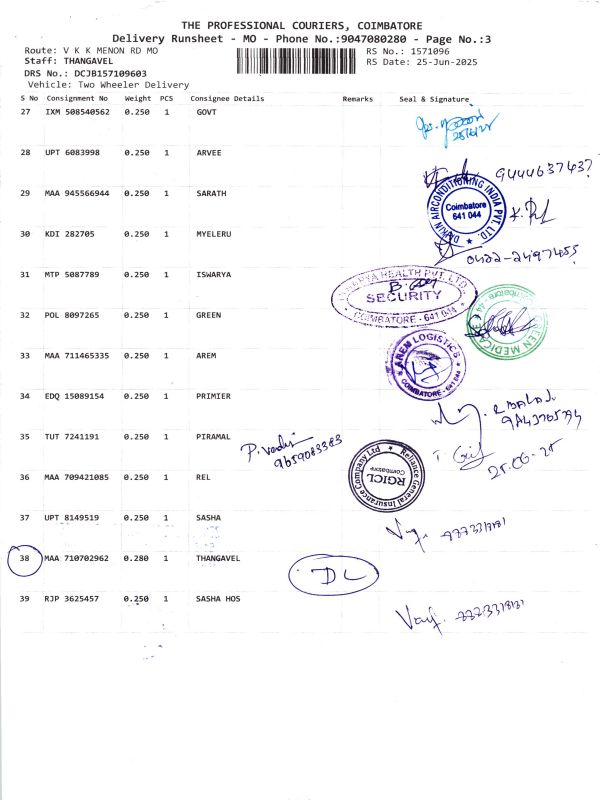 THE PROFESSIONAL COURIERS, COIMBATORE
Delivery Runsheet - MO - Phone No.:9047080280 - Page No.:3
Route: V K K MENON RD MO
RS No.: 1571096
Staff: THANGAVEL
RS Date: 25-Jun-2025
DRS No.: DCJB157109603
Vehicle: Two Wheeler Delivery
S No Consignment No Weight PCS Consignee Details Remarks Seal & Signature
27 IXM 508540562 0.250 1 GOVT
28 UPT 6083998 0.250 1 ARVEE
9444637437
29 MAA 945566944 0.250 1 SARATH
DAIKIN AIRCONDITIONING INDIA PVT. LTD.
Coimbatore
641 044
30 KDI 282705 0.250 1 MYELERU
0422-2497455
31 MTP 5087789 0.250 1 ISWARYA
HEALTH PVT. LTD.
SECURITY
COIMBATORE - 641 044
32 POL 8097265 0.250 1 GREEN
GREEN MEDICA
33 MAA 711465335 0.250 1 AREM
AREM LOGISTICS
COIMBATORE-641 044
34 EDQ 15089154 0.250 1 PRIMIER
35 TUT 7241191 0.250 1 PIRAMAL
9659083383
25-06-25
36 MAA 709421085 0.250 1 REL
Reliance General Insurance Company Ltd
RGICL
Coimbatore
37 UPT 8149519 0.250 1 SASHA
38 MAA 710702962 0.280 1 THANGAVEL
DL
39 RJP 3625457 0.250 1 SASHA HOS